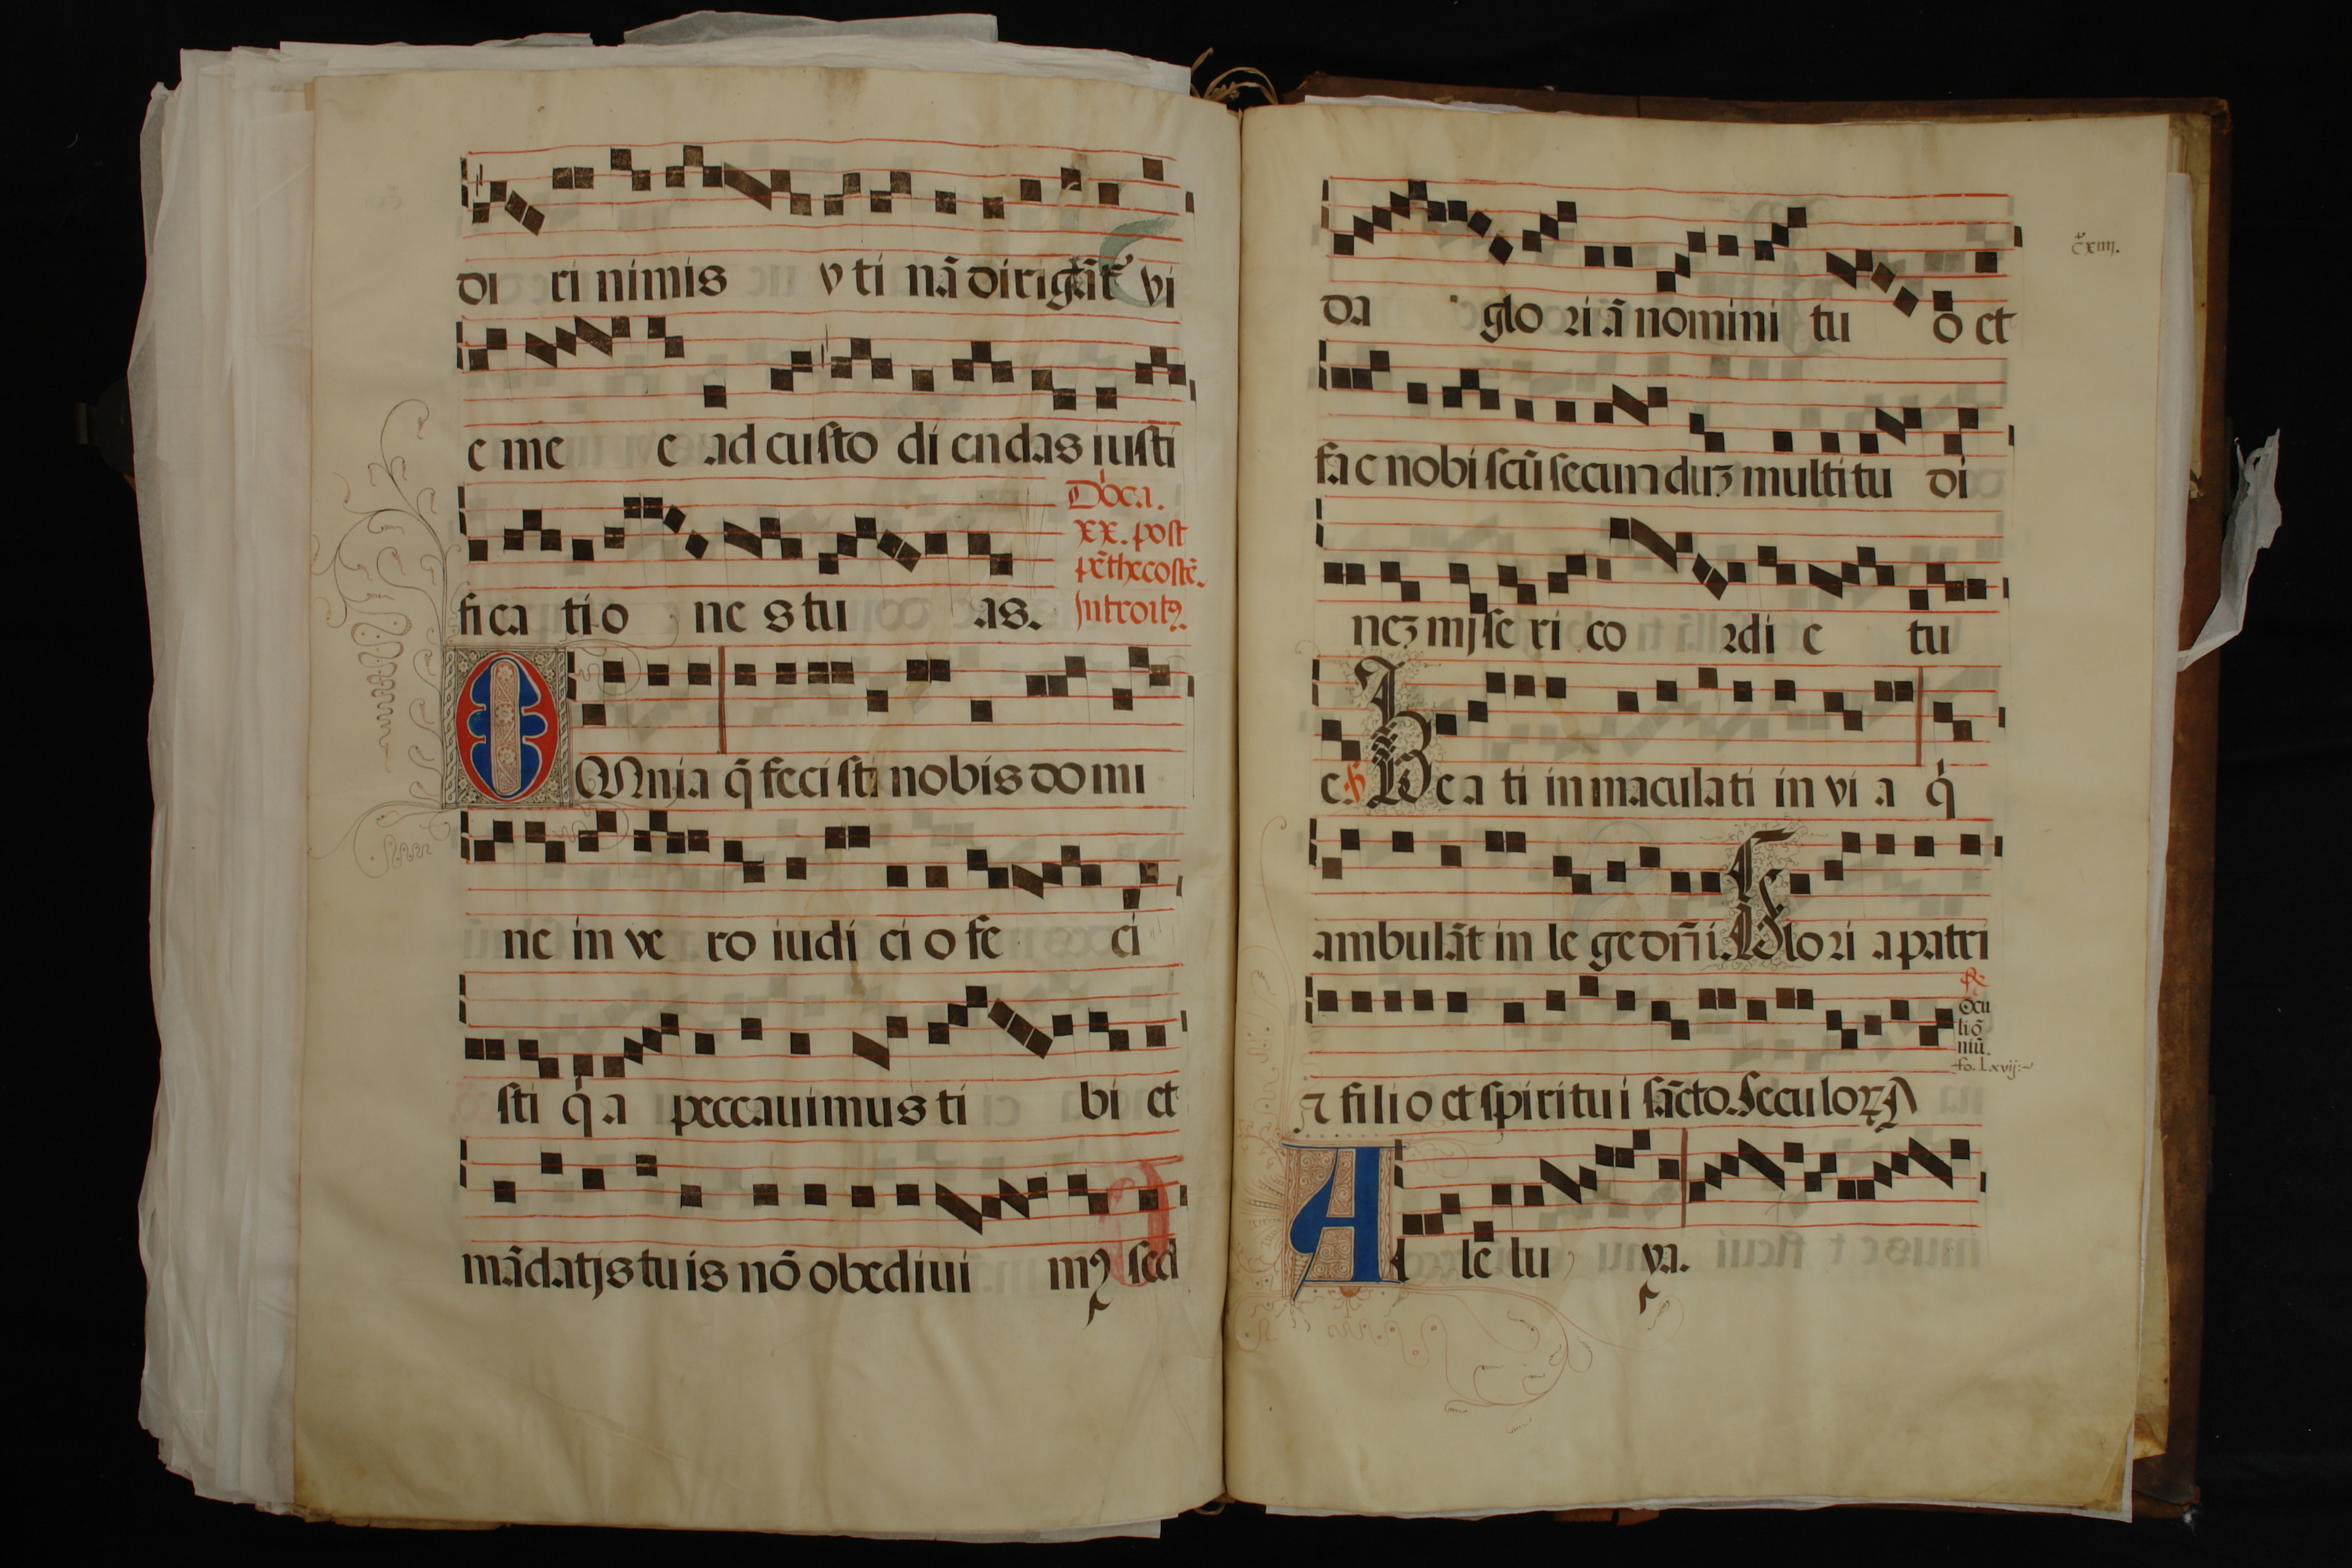 di ri nimis v ti nā dirigāt̄ vi
e me e ad custo di endas iusti
fica tio ne s tu as.
Dōca.
xx. post
pēthecostē.
Introitꝰ.
Omnia q̄ feci sti nobis do mi
ne in ve ro iudi ci o fe ci
sti q́ a peccauimus ti bi et
mādatjs tuis nō obediui mꝰ sed
c̄xiiij.
da glo ri ā nomini tu o et
fac nobi scū secunduʒ multi tu di
neʒ mjse ri co rdi e tu
e. p̄s Be a ti inmaculati in vi a q́
ambulāt in le ge dn̄i. Glori a patri
⁊ filio et spiritui sācto. Seculoꝝ A
R̄.
Ocu
li oō
niū.
fo. lxvij:~
Al le lu ya.